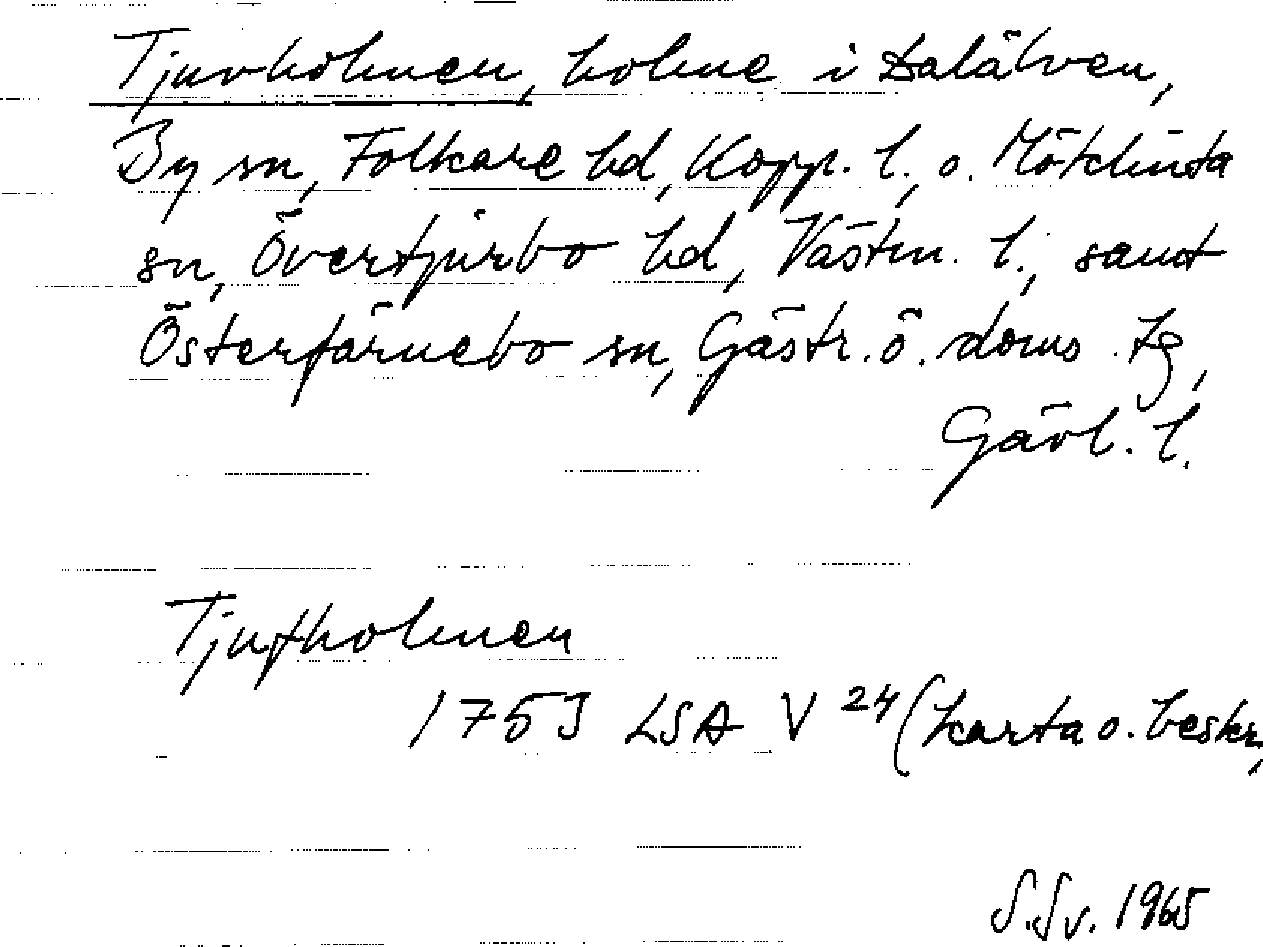 Tjuvholmen, holme i Dalälven,
By sn, Folkare hd, Kopp. l., o. Möklinta
sn, Övertjurbo hd, Västm. l., samt
Österfärnebo sn, Gästr. ö. doms. tg,
Gävl. l.
Tjufholmen
1753 LSA V 24 (karta o. beskr,
S.Sv. 1965